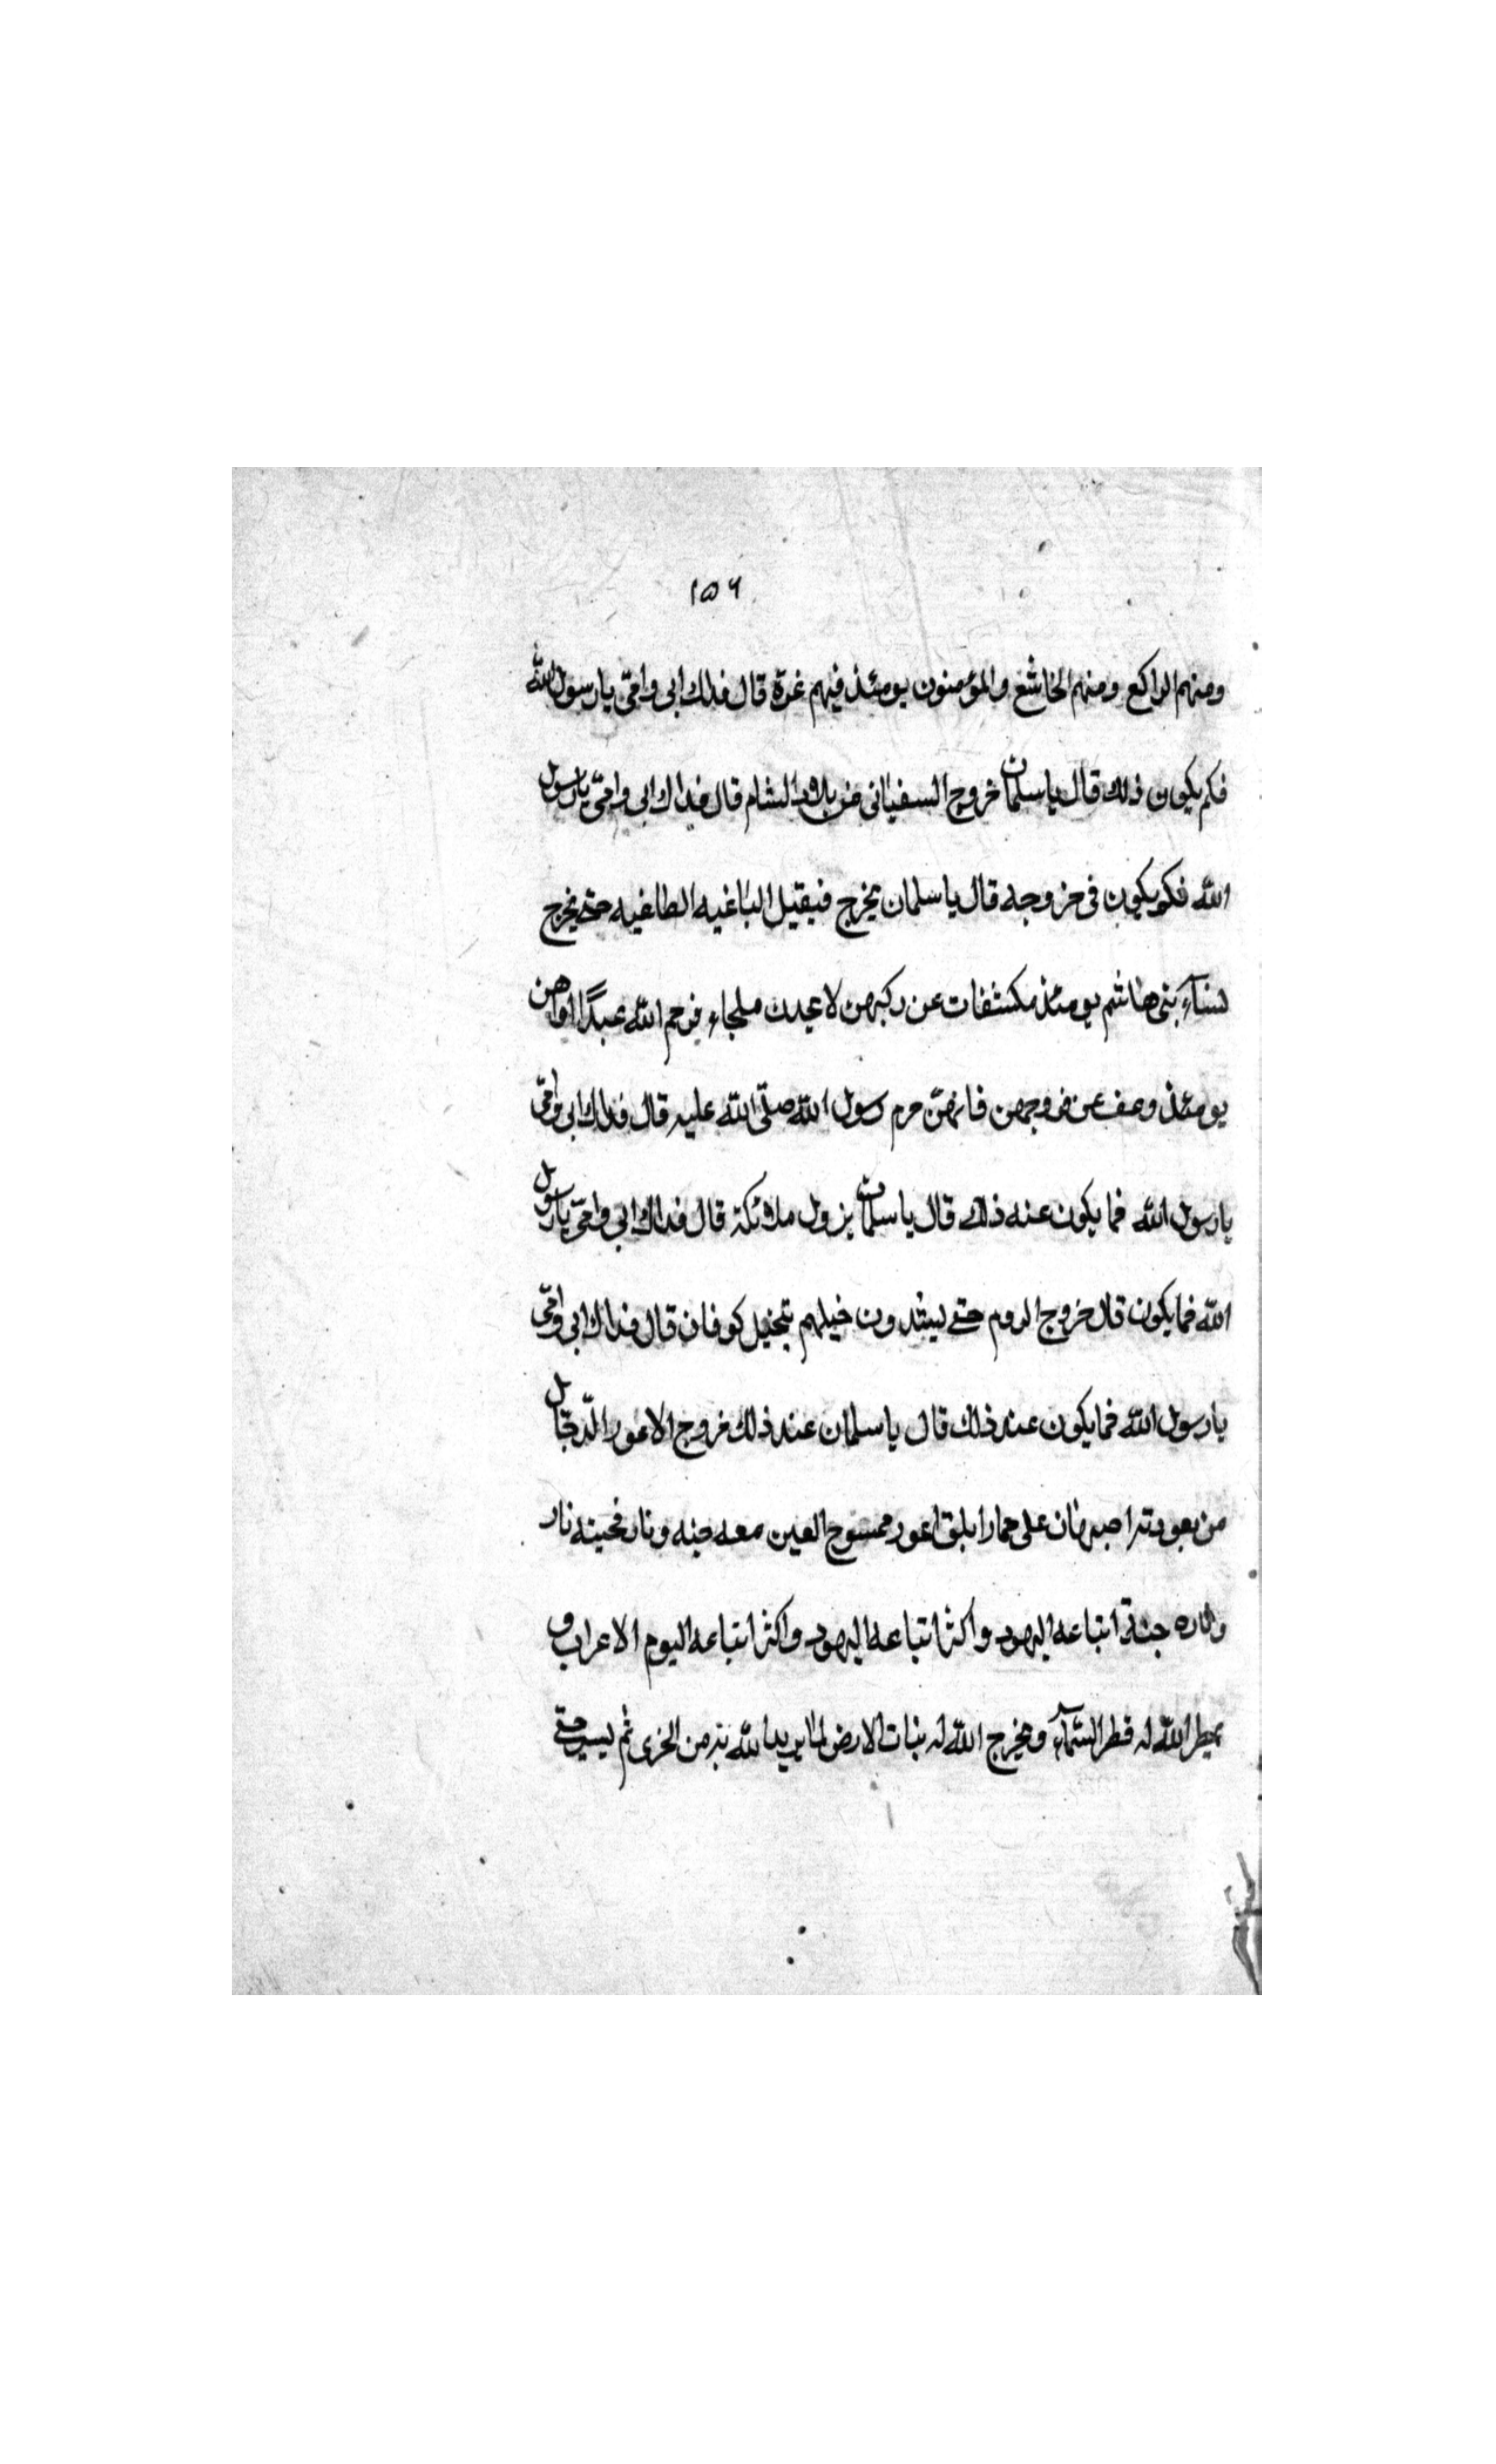 ١٥٦
ومنهم الراكع ومنهم الخاشع والمؤمنون يومئذ فيهم غرة قال فداك ابى وامّى يا رسول اللّه
فكم يكون ذلك قال يا سلمان خروج السفيانى من بلاد الشام قال فداك ابى وامّى يا رسول
اللّه فكم يكون فى خروجه قال يا سلمان يخرج فيقتل الباغيه الطاغيه حتى يخرج
نسآء بنى هاشم يومئذ مكشفات عن ركبهن لا يجدن ملجاء فرحم اللّه عبدًا اواهن
يومئذ وعف عن فروجهن فانهنّ حرم رسول اللّه صلّى اللّه عليه قال فداك ابى وامّى
يا رسول اللّه فما يكون عنه ذلك قال يا سلمان نزول ملائكة قال فداك ابى وامّى يا رسول
اللّه فما يكون قال خروج الروم حتى ليشدون خيلهم بنخيل كوفان قال فداك ابى وامّى
يا رسول اللّه فما يكون عند ذلك قال يا سلمان عند ذلك خروج الاعور الدّجّال
من يهودية اصبهان على حمار ابلق اعور ممسوح العين معه جنه ونار فجنته نار
وناره جنة اتباعه اليهود واكثر اتباعه اليهود واكثر اتباعه اليوم الاعراب و
يمطر اللّه له قطر السّمآء ويخرج اللّه له نبات الارض لما يريد اللّه به من الخزى ثم ليسير حتى